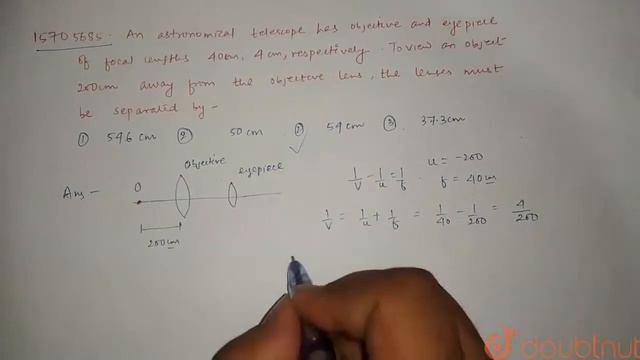 15705685. An astronomical telescope has objective and eyepiece
of focal lengths 40cm, 4cm, respectively. To view an object
200cm away from the objective lens, the lenses must
be separated by -
① 546 cm ② 50 cm 54 cm ③ 37.3cm
objective eyepiece
Ans - O
200cm
1/v - 1/u = 1/f u = -200
f = 40cm
1/v = 1/u + 1/f = 1/40 - 1/200 = 4/200
doubtnut